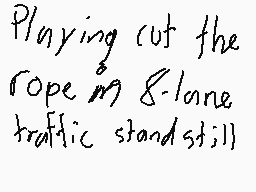 Playing cut the
rope in 8-lane
traffic standstill